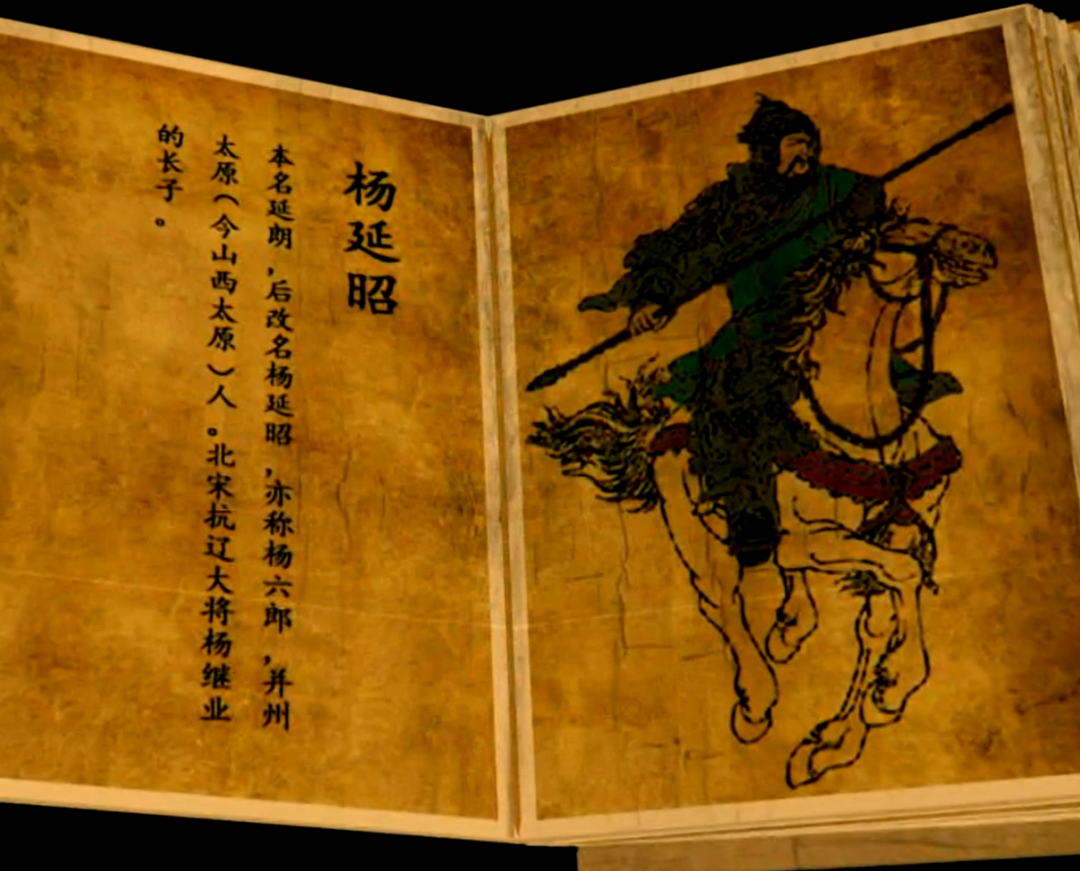 杨延昭
本名延朗，后改名杨延昭，亦称杨六郎，并州
太原（今山西太原）人。北宋抗辽大将杨继业
的长子。